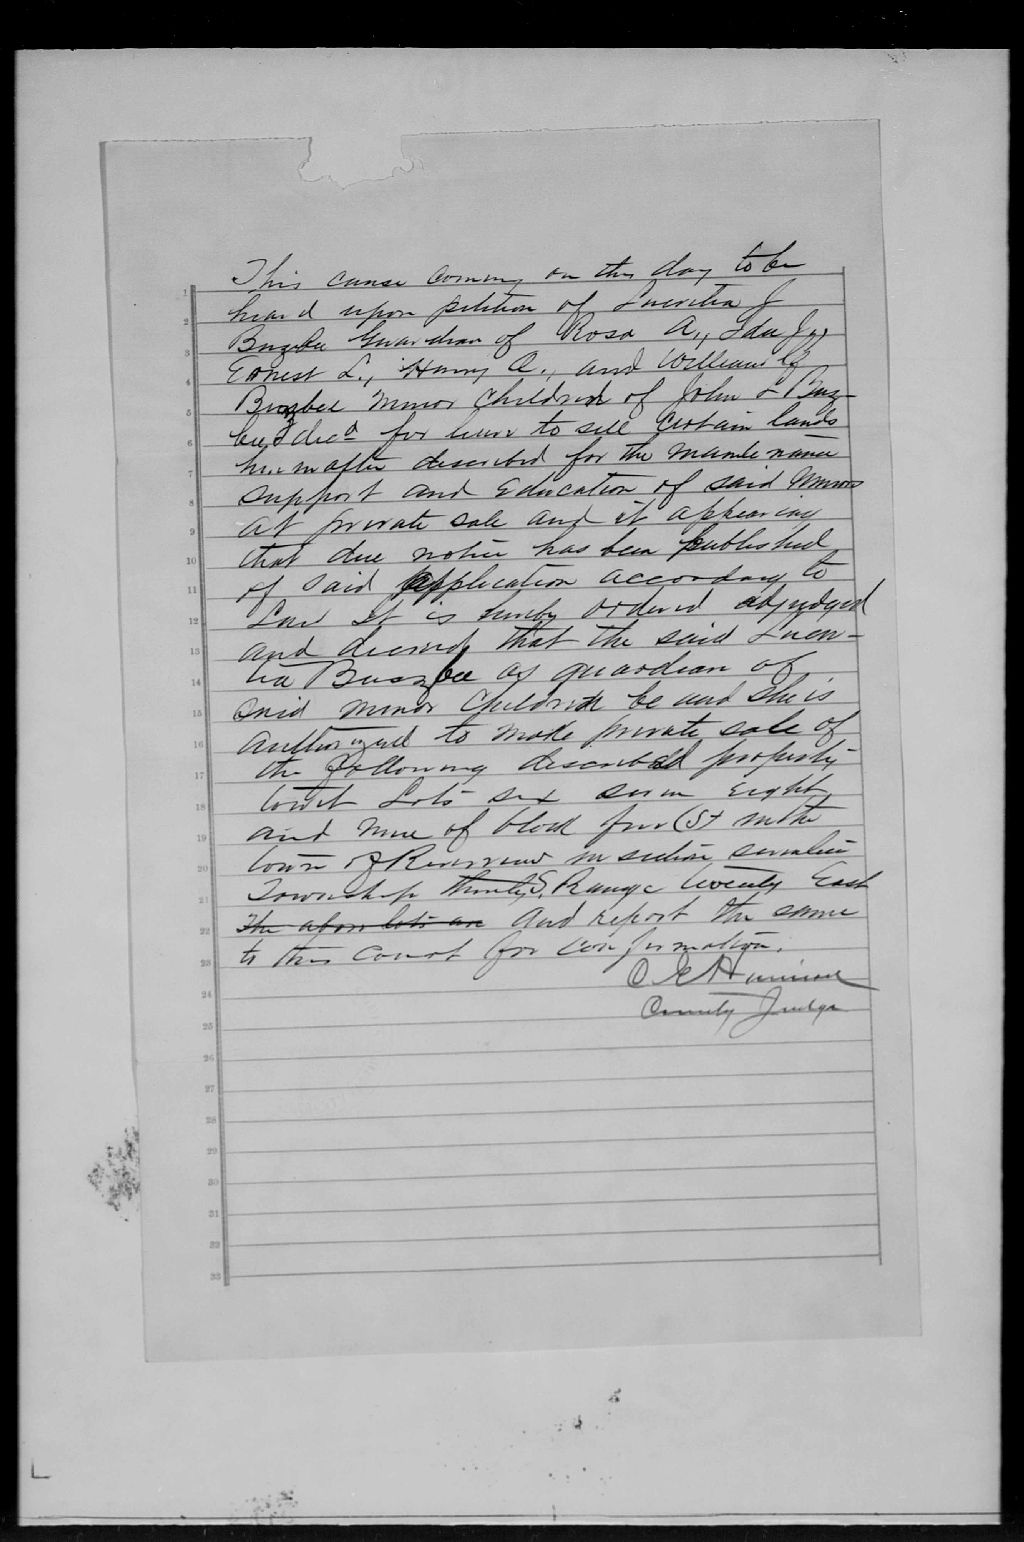 This cause coming on this day to be
heard upon petition of Lucretia J
Buzbee Guardian of Rosa A., Ida J.,
Ernest L., Harry A., and William
Buzbee minor Children of John L Buz-
bee decd for leave to sell certain lands
hereinafter described for the maintenance
support and Education of said Minors
at private sale and it appearing
that due notice has been published
of said application according to
Law It is hereby ordered adjudged
and decreed that the said Lucre-
tia Buzbee as guardian of
said minor Children be and she is
authorized to make private sale of
the following described property
towit Lots six seven Eight
and nine of block five (5) in the
town of Riverview in section nineteen
Township thirty S, Range twenty East
The above lots are and report the same
to this Court for confirmation.
County Judge
1
2
3
4
5
6
7
8
9
10
11
12
13
14
15
16
17
18
19
20
21
22
23
24
25
26
27
28
29
30
31
32
33